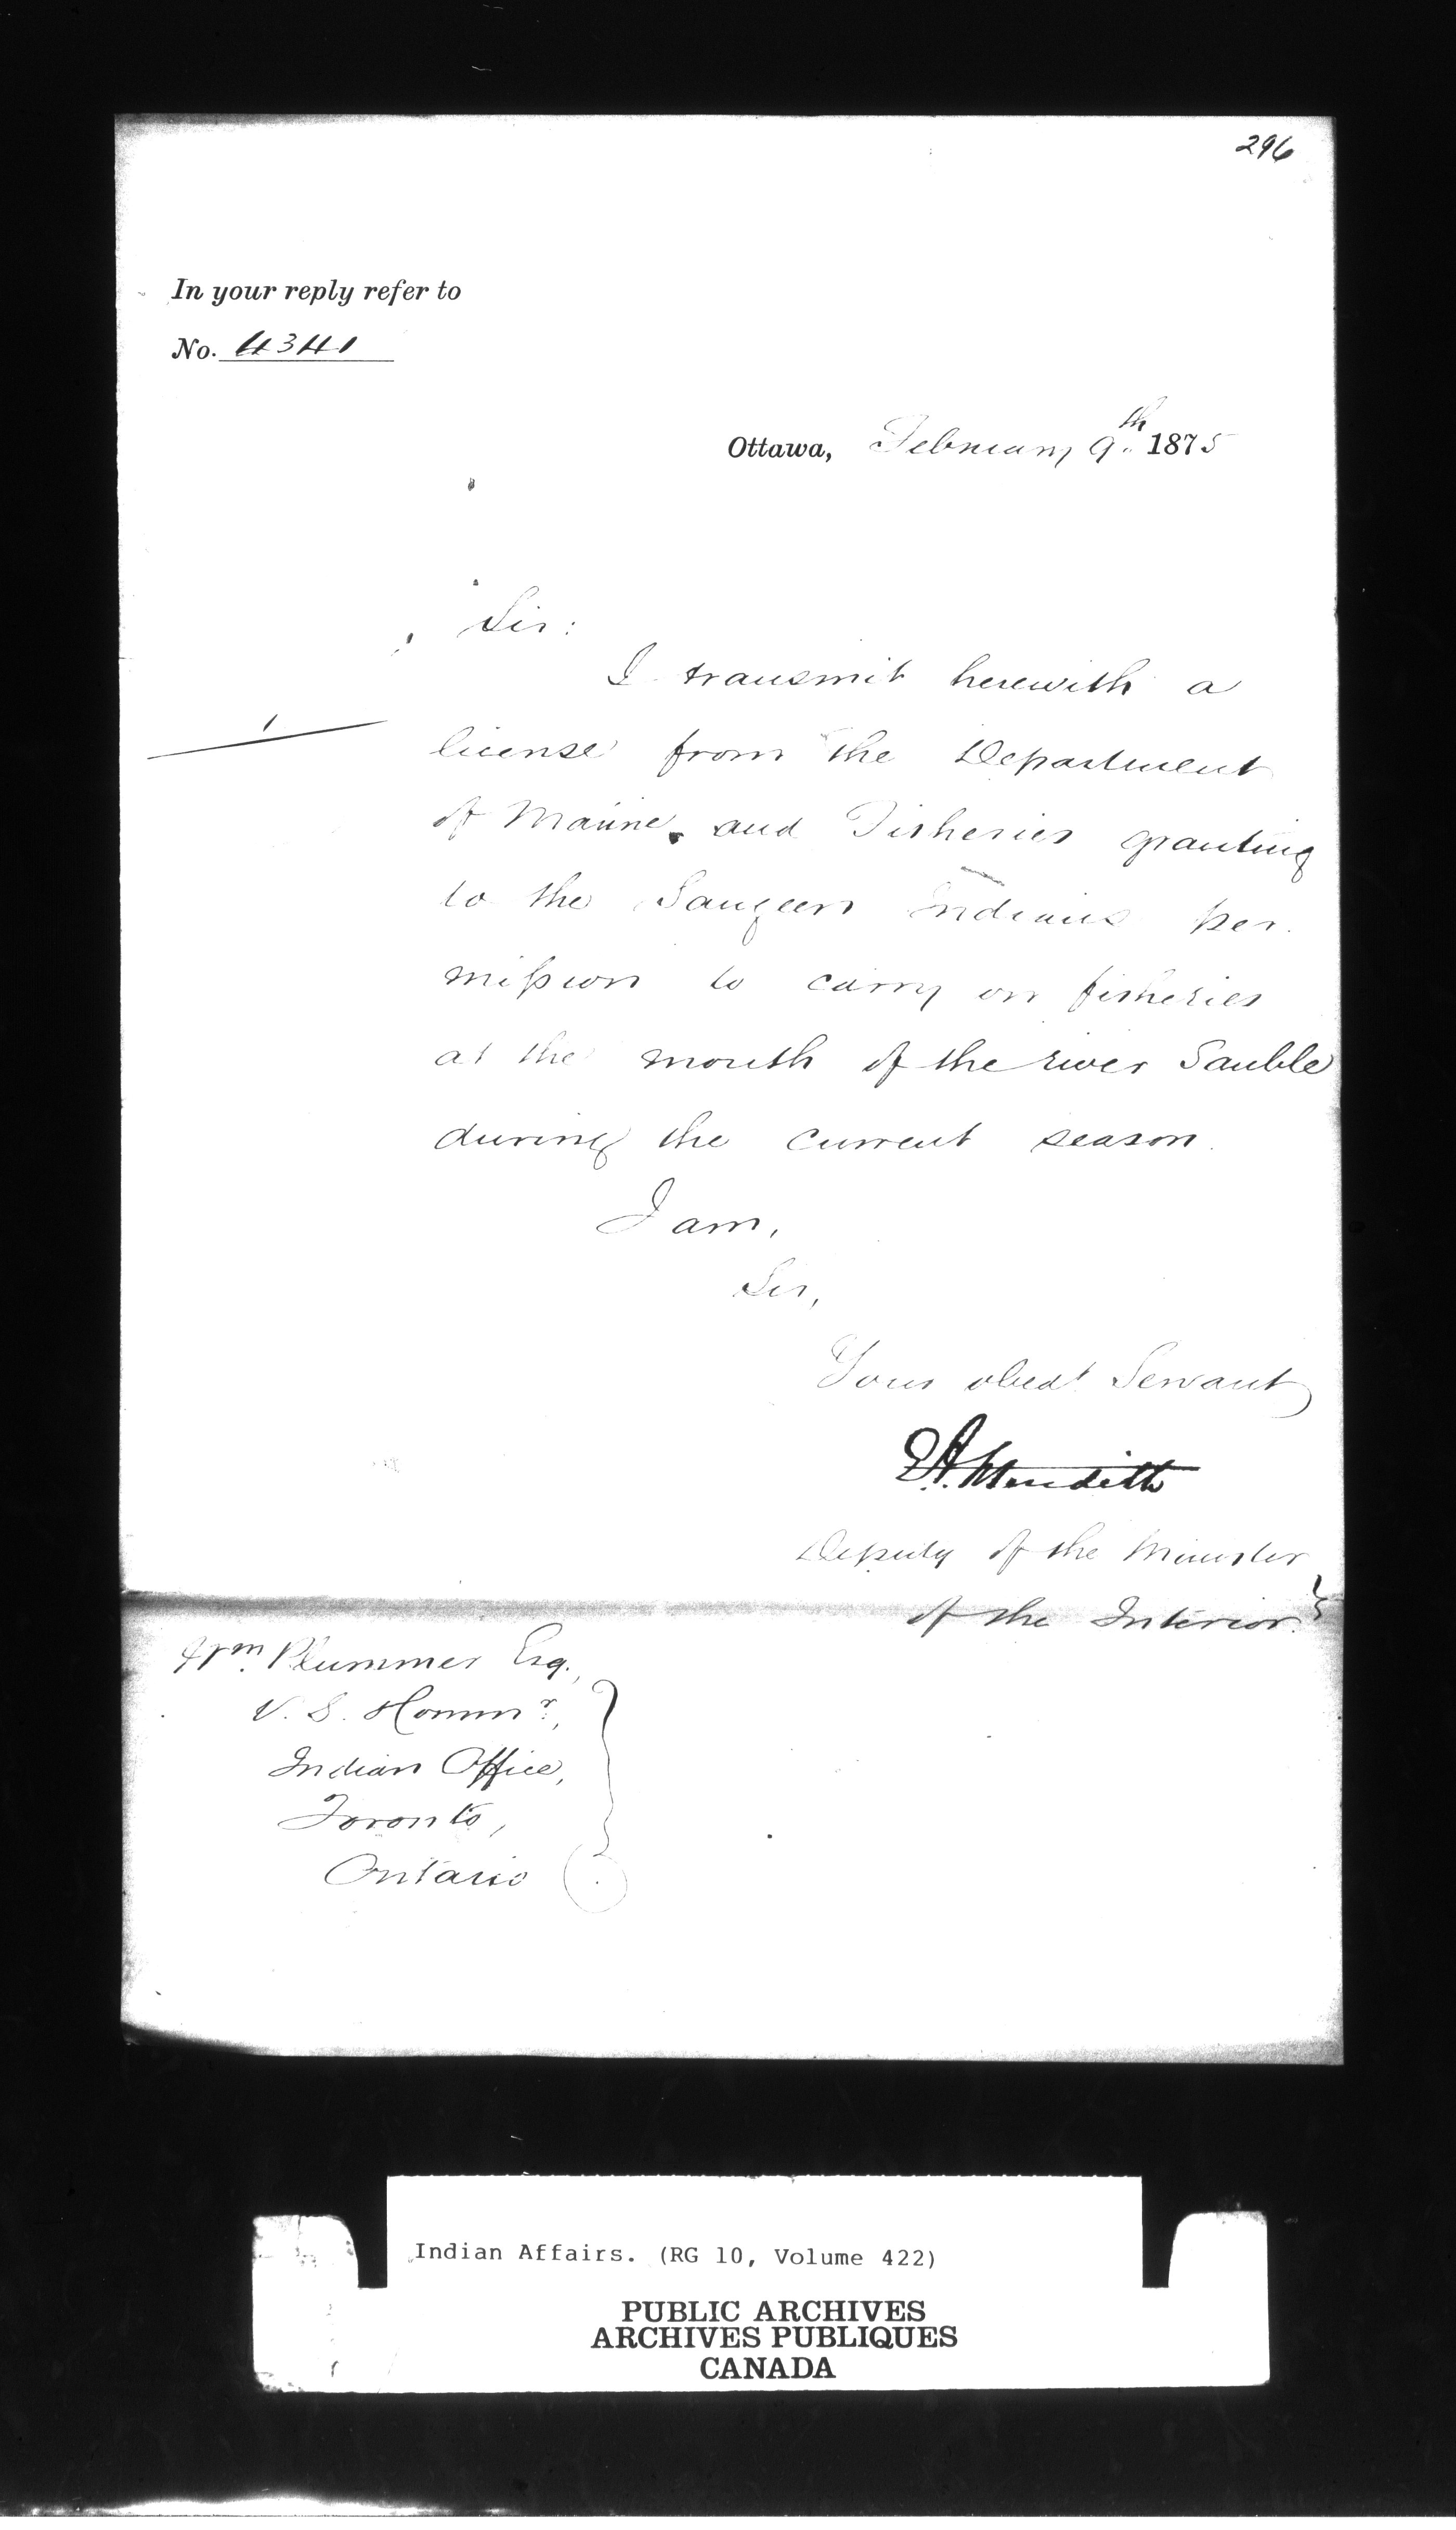 296
In your reply refer to
No. 4341
Ottawa, February 9th 1875
Sir:
I transmit herewith a
license from the Department
of Marine and Fisheries granting
to the Saugeen Indians per
mission to carry on fisheries
at the mouth of the river Sauble
during the current season.
I am,
Sir,
Your obedt Servant
E.A. Meredith
Deputy of the Minister
of the Interior.
Wm. Plummer Esq.,
V. S. Commr,
Indian Office,
Toronto,
Ontario
Indian Affairs. (RG 10, Volume 422)
PUBLIC ARCHIVES
ARCHIVES PUBLIQUES
CANADA